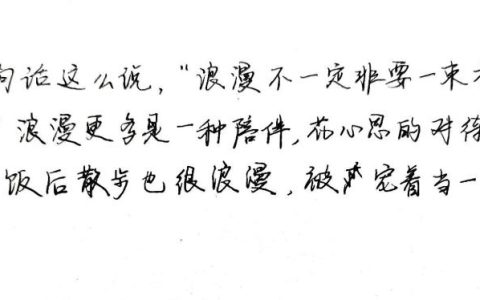 句话这么说，“浪漫不一定非要一束
浪漫更多是一种陪伴，花心思的对待
饭后散步也很浪漫，被宠着当一